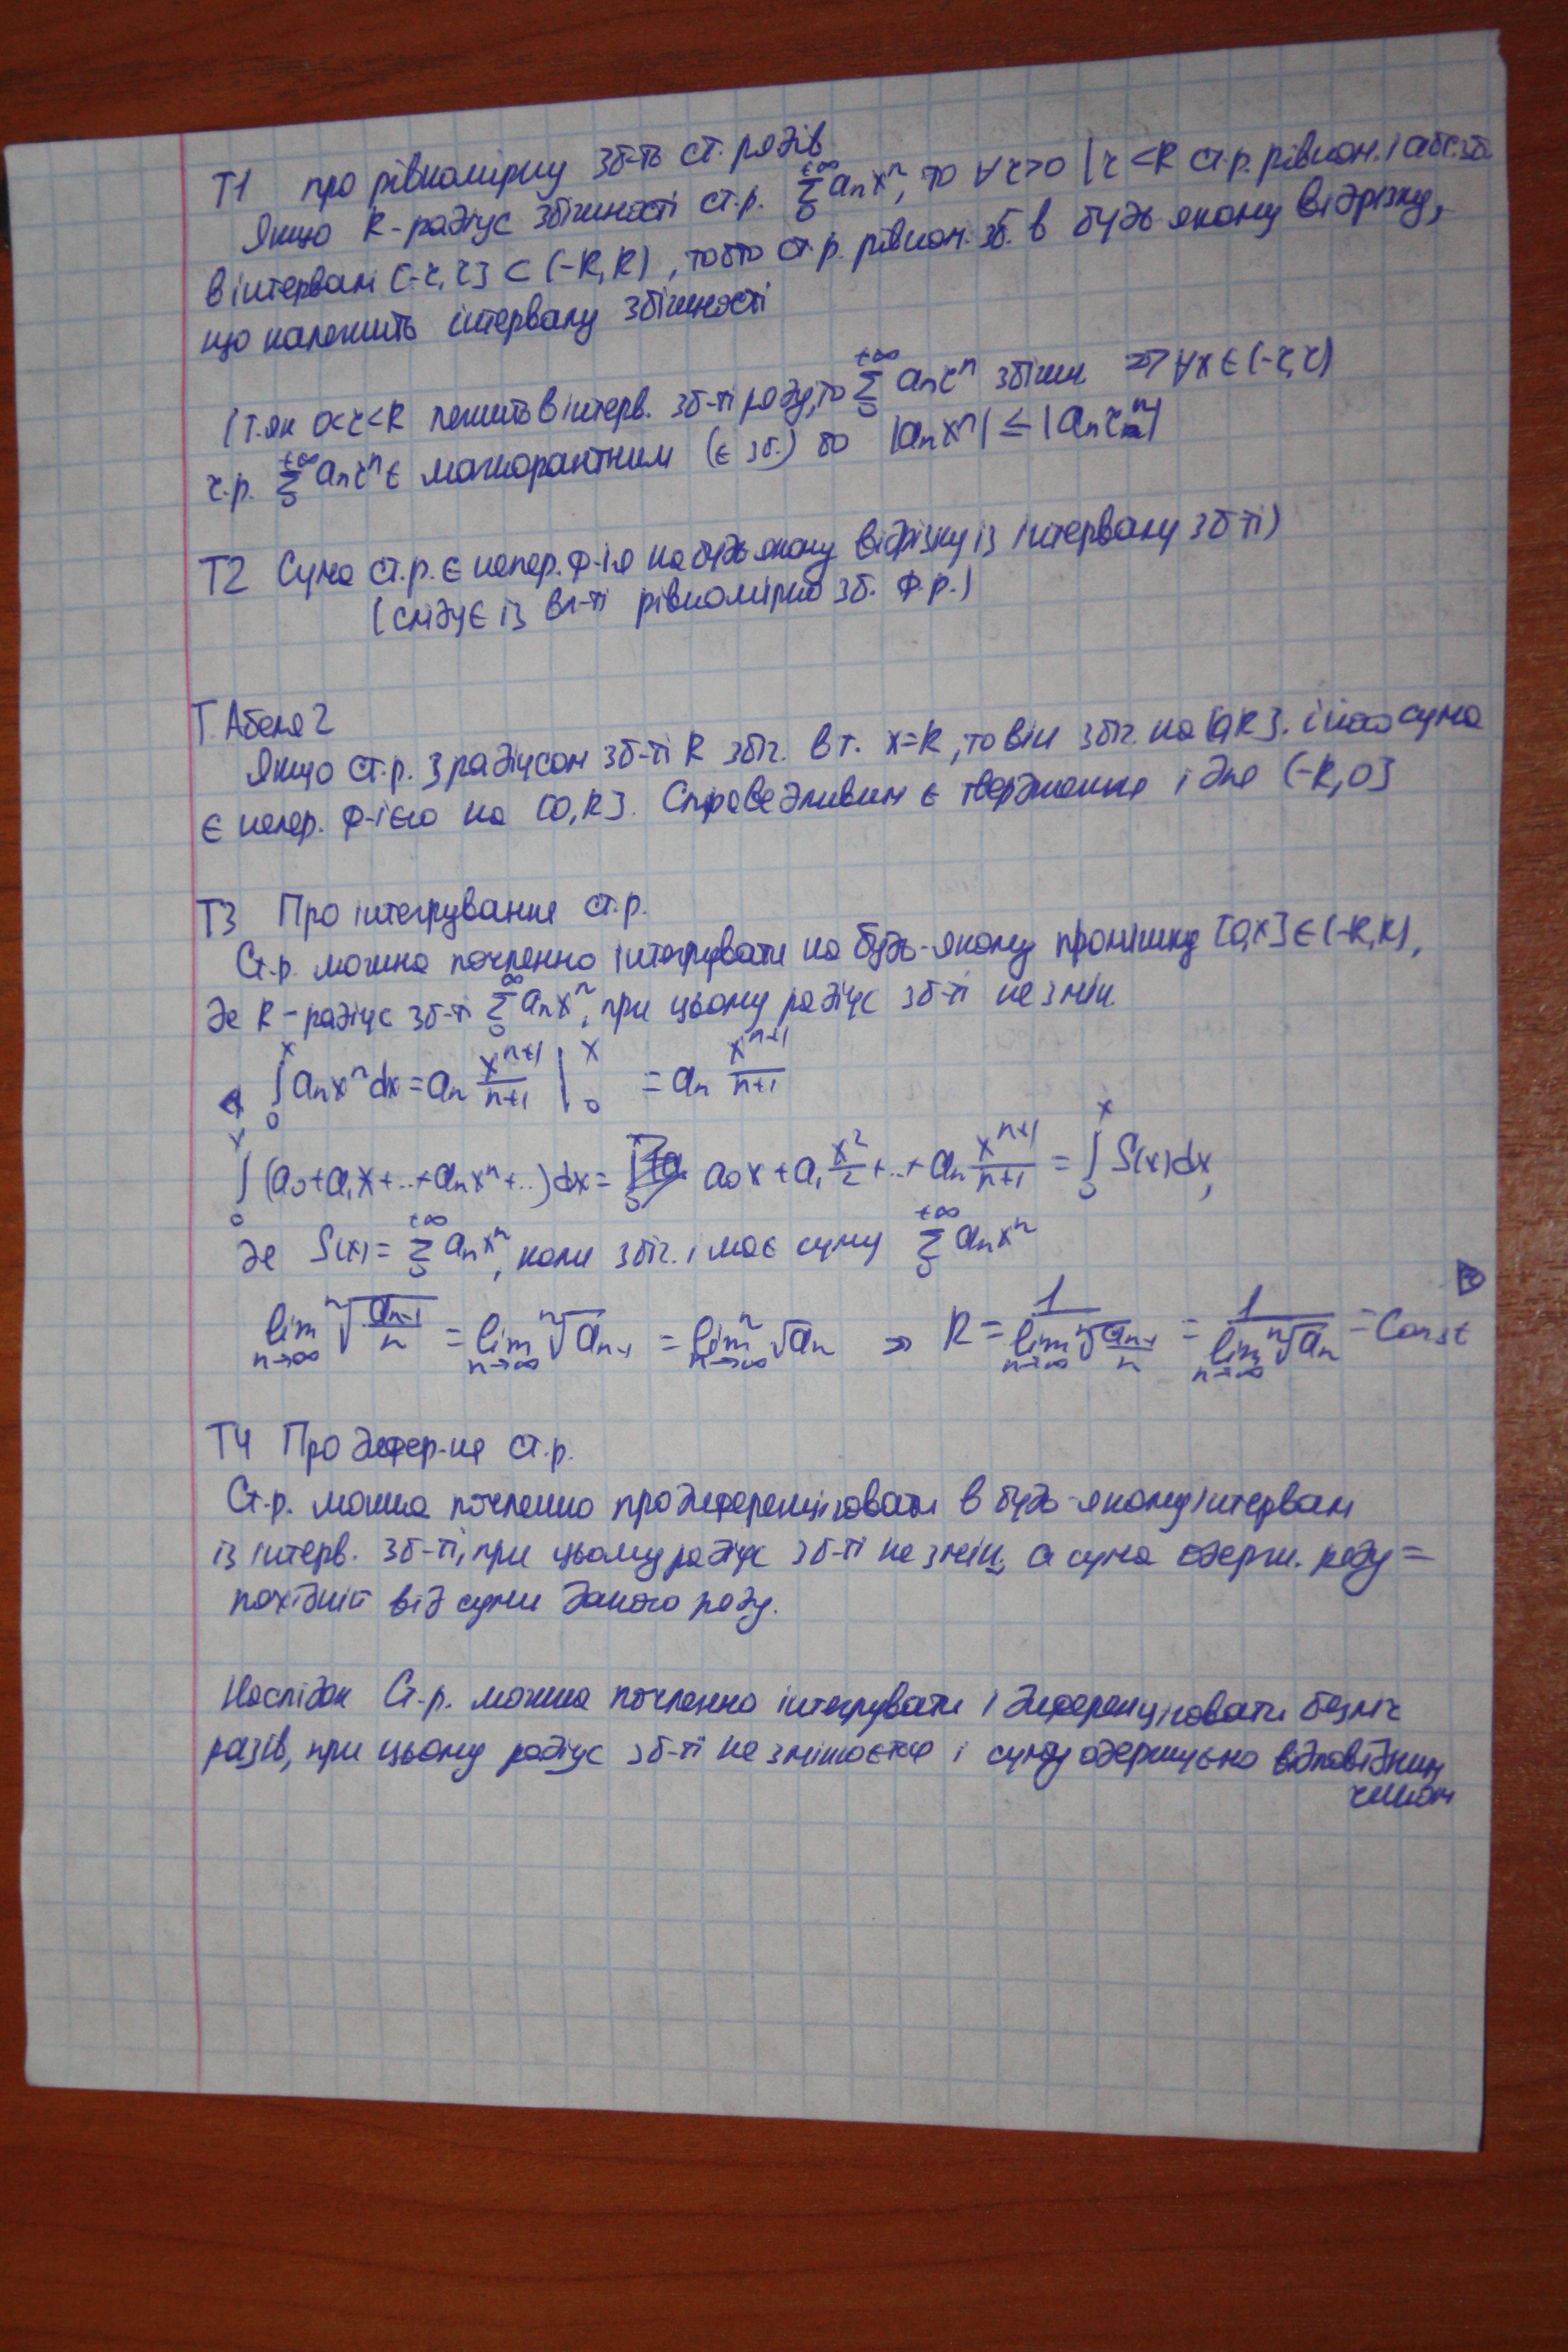 Т1 про рівномірну зб-ть ст. рядів
Якщо R-радіус збіжності ст.р. +∞ Σ 0 aₙxⁿ, то ∀ r>0 | r<R ст.р. рівном. і абс. зб.
в інтервалі [-r, r] ⊂ (-R, R), тобто ст.р. рівном. зб. в будь якому відрізку,
що належить інтервалу збіжності
(т.як 0<r<R лежить в інтерв. зб-ті ряду, то +∞ Σ 0 aₙrⁿ збіжн ⇒ ∀x∈(-r, r)
ч.р. +∞ Σ 0 aₙrⁿ є мажорантним (є зб.) бо |aₙxⁿ| ≤ |aₙrⁿ|
Т2 Сума ст.р. є непер. ф-ія на будь якому відрізку із інтервалу зб-ті)
(слідує із вл-ті рівномірно зб. ф.р.)
Т. Абеля 2
Якщо ст.р. з радіусом зб-ті R збіг. в т. x=R, то він збіг. на [0,R]. і його сума
є непер. ф-ією на [0,R]. Справедливим є твердження і для (-R,0]
Т3 Про інтегрування ст.р.
Ст.р. можна почленно інтегрувати на будь-якому проміжку [0,x]∈(-R,R),
де R-радіус зб-ті ∞ Σ 0 aₙxⁿ, при цьому радіус зб-ті не змін.
◄ ∫₀ˣ aₙxⁿdx = aₙ xⁿ⁺¹/(n+1) |₀ˣ = aₙ xⁿ⁺¹/(n+1)
∫₀ˣ (a₀+a₁x+..+aₙxⁿ+..)dx = a₀x+a₁ x²/2 +..+ aₙ xⁿ⁺¹/(n+1) = ∫₀ˣ S(x)dx,
де S(x) = +∞ Σ 0 aₙxⁿ, коли збіг. і має суму +∞ Σ 0 aₙxⁿ
lim n→∞ ⁿ√(aₙ₋₁/n) = lim n→∞ ⁿ√aₙ₋₁ = lim n→∞ ⁿ√aₙ ⇒ R = 1/(lim n→∞ ⁿ√(aₙ₋₁/n)) = 1/(lim n→∞ ⁿ√aₙ) = Const ►
Т4 Про дифер-ня ст.р.
Ст.р. можна почленно продиференціювати в будь-якому інтервалі
із інтерв. зб-ті, при цьому радіус зб-ті не змін, а сума одерж. ряду =
похідній від суми даного ряду.
Наслідок Ст.р. можна почленно інтегрувати і диференціювати безліч
разів, при цьому радіус зб-ті не змінюється і суму одержуємо відповідним
чином